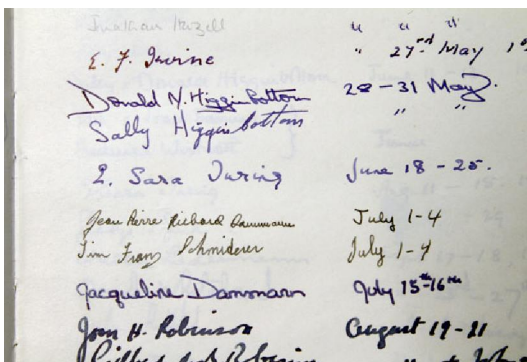 Jonathan
" " "
E. F. Irvine " 27nd May
Donald N. Higginbottom 28-31 May.
Sally Higginbottom " "
E. Sara Turing June 18-25.
Jean Pierre Richard July 1-4
Tim Franz Schmiderer July 1-4
Jacqueline Dammann July 15th-16th
Joan H. Robinson August 19-21
Robinson